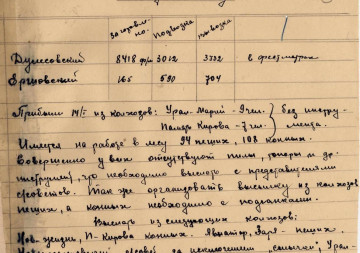 Заготовлено. Подвозка Вывозка
Думсовский 8418 3012 3732 в фестметрах
Ершовский 165 590 704
Прибыли из колхозов: Урал-Марий - 9 чел. } без инстру-
Память Кирова - 7 чел. мента.
Имеется на работе в лесу 94 пеших, 108 конных.
Совершенно у всех отсутствуют пилы, топоры и др.
инструмент, что необходимо выслать с представителями
с/советов. Так же организовать высылку из колхозов
пеших, а конных необходимо с подсанками.
Выслать из следующих колхозов:
Нов-жизнь, П-Кирова конных. Авиатор, Заря - пеших.
за исключением Урал-